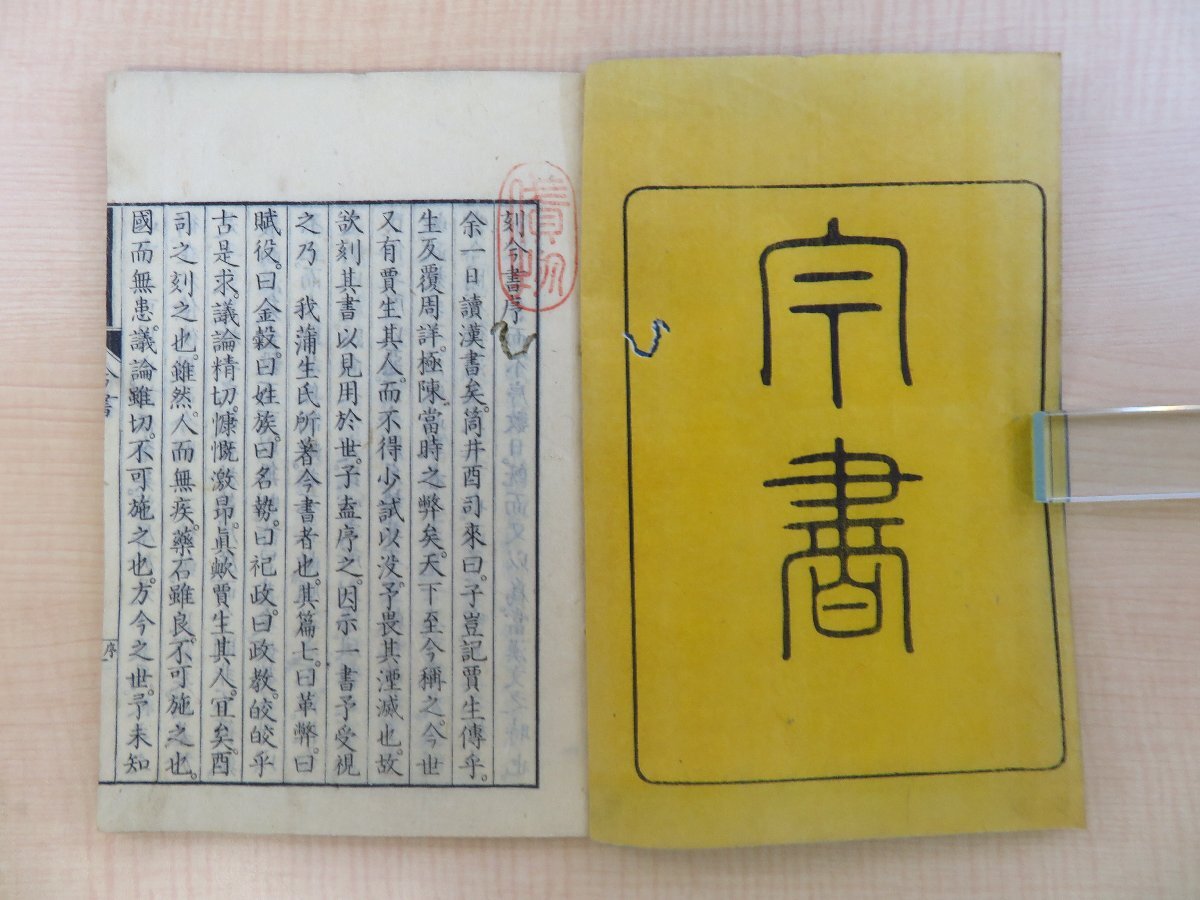 今書
刻今書序
余一日讀漢書矣。筒井酉司來曰。子豈記賈生傳乎。
生反覆周詳。極陳當時之弊矣。天下至今稱之。今世
又有賈生其人。而不得少試以没。予畏其湮滅也。故
欲刻其書以見用於世。子盍序之。因示一書予受視
之乃 我蒲生氏所著今書者也。其篇七。曰革弊。曰
賦役。曰金穀。曰姓族。曰名勢。曰祀政。曰政教。皎皎乎
古是求。議論精切。慷慨激昂。眞歟賈生其人。宜矣。酉
司之刻之也。雖然。人而無疾。藥石雖良。不可施之也。
國而無患。議論雖切。不可施之也。方今之世。予未知
今書
序